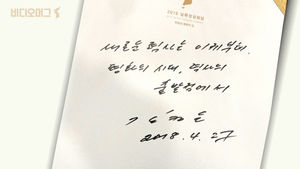 비디오머그
2018 남북정상회담
새로운 력사는 이제부터.
평화의 시대, 력사의
출발점에서
김정은
2018. 4. 27